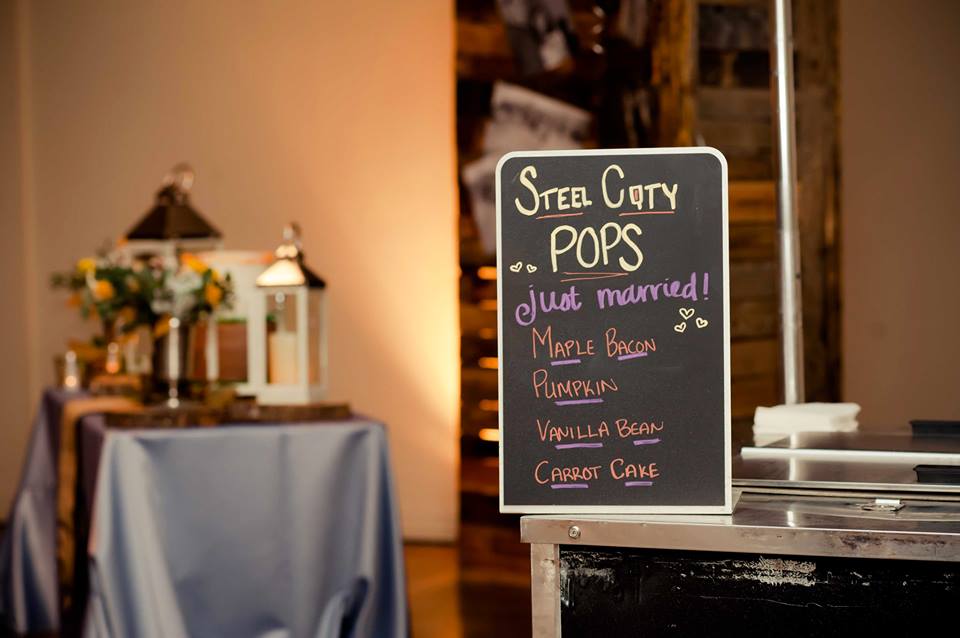 STEEL CITY
POPS
just married!
MAPLE BACON
PUMPKIN
VANILLA BEAN
CARROT CAKE